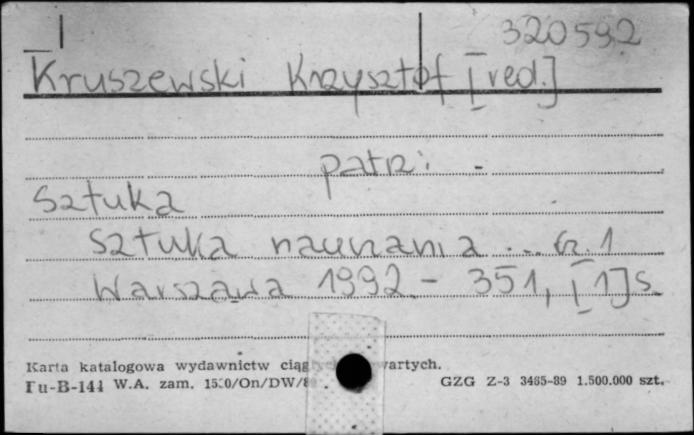 320592
Kruszewski Krzysztof [red.]
patrz: -
Sztuka
Sztuka nauczania ... Cz. 1
Warszawa 1992 - 351, [1] s.
Karta katalogowa wydawnictw wartych.
Pu-B-144 W.A. zam. GZG Z-3 3485-89 1.500.000 szt.